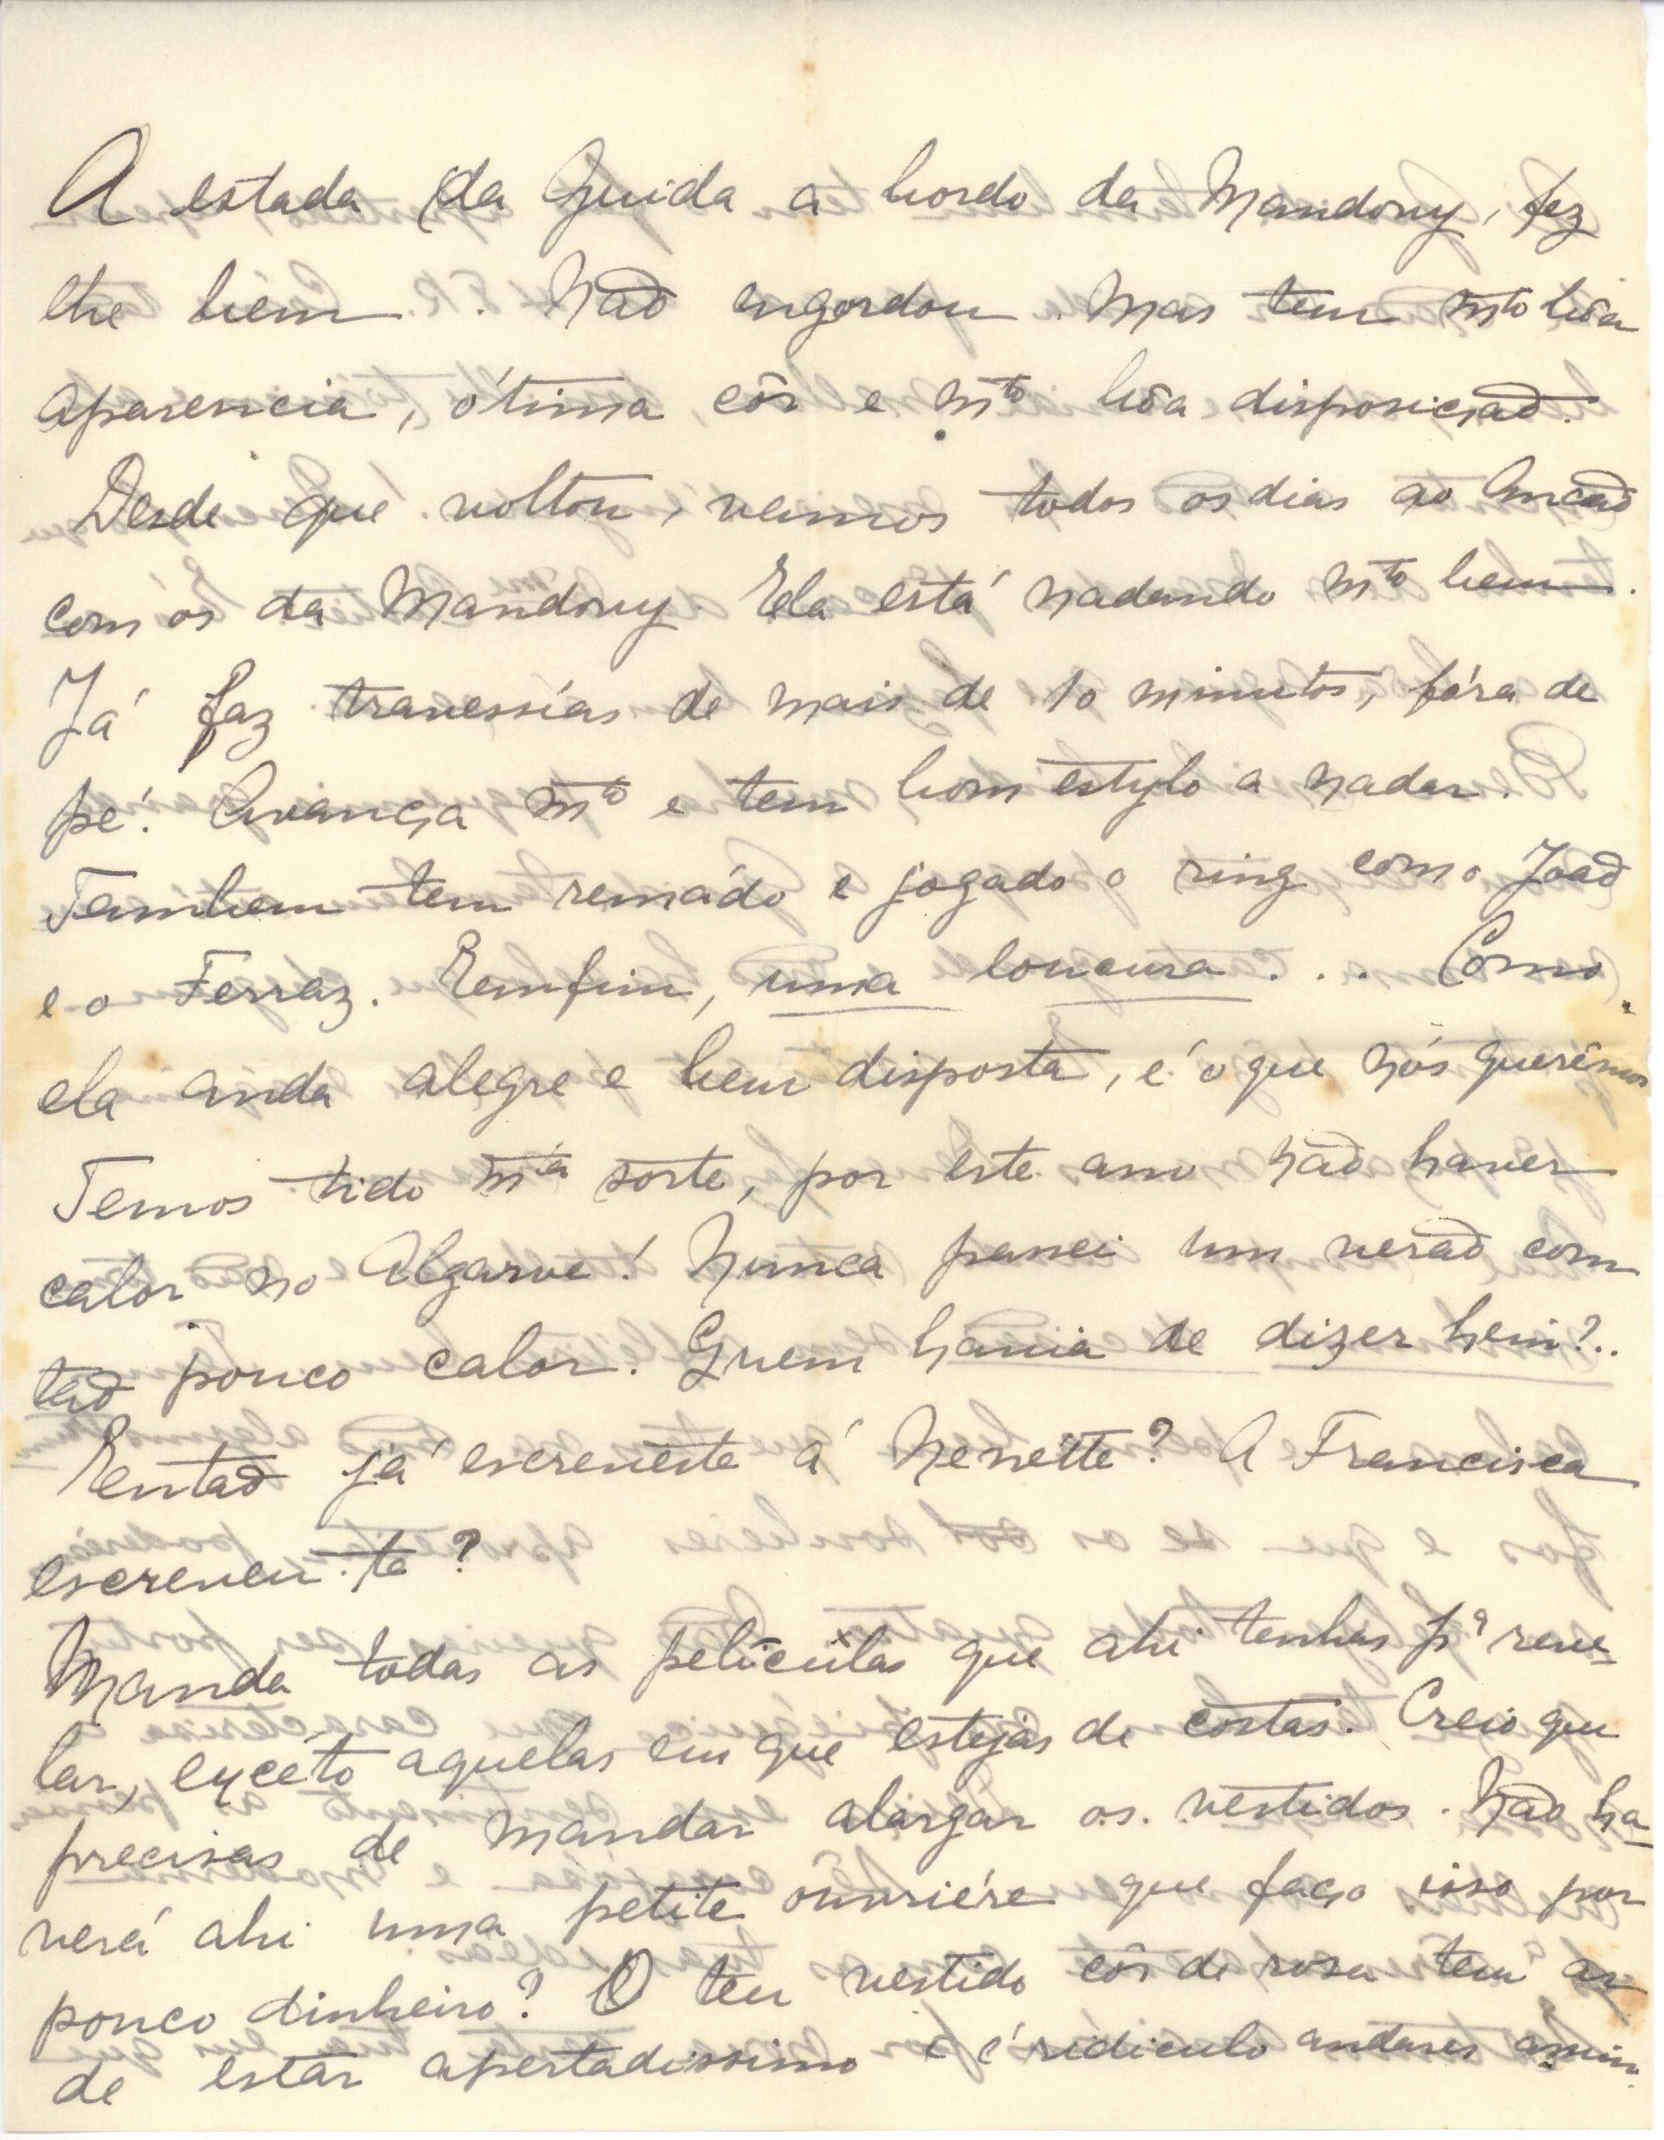 A estada da Guida a bordo da Mandovy, fez
lhe bem. Não engordou. Mas tem mto bôa
aparencia, ótima côr e mto bôa disposição.
Desde que voltou, vamos todos os dias ao Ancão
com os da Mandovy. Ela está nadando mto bem.
Já faz travessías de mais de 10 minutos, fóra de
pé! Avança mto e tem bom estylo a nadar.
Tambem tem remádo e jogado o ring com o João
e o Ferraz. Emfim, uma loucura... Como
ela anda alegre e bem disposta, é o que nós querêmos
Temos tido mta sorte, por este ano não haver
calor no Algarve! Nunca passei um verão com
tão pouco calor. Quem havia de dizer hein?..
Então já escreveste á Nenette? A Francisca
escreveu-te?
Manda todas as peliculas que ahi tenhas pª reve-
lar, excéto aquelas em que estejas de costas. Creio que
precisas de mandar alargar os vestidos. Não ha-
verá ahi uma petite ouvriére que faça isso por
pouco dinheiro? O teu vestido côr de rosa tem
de estar apertadissimo e é ridiculo andares assim.